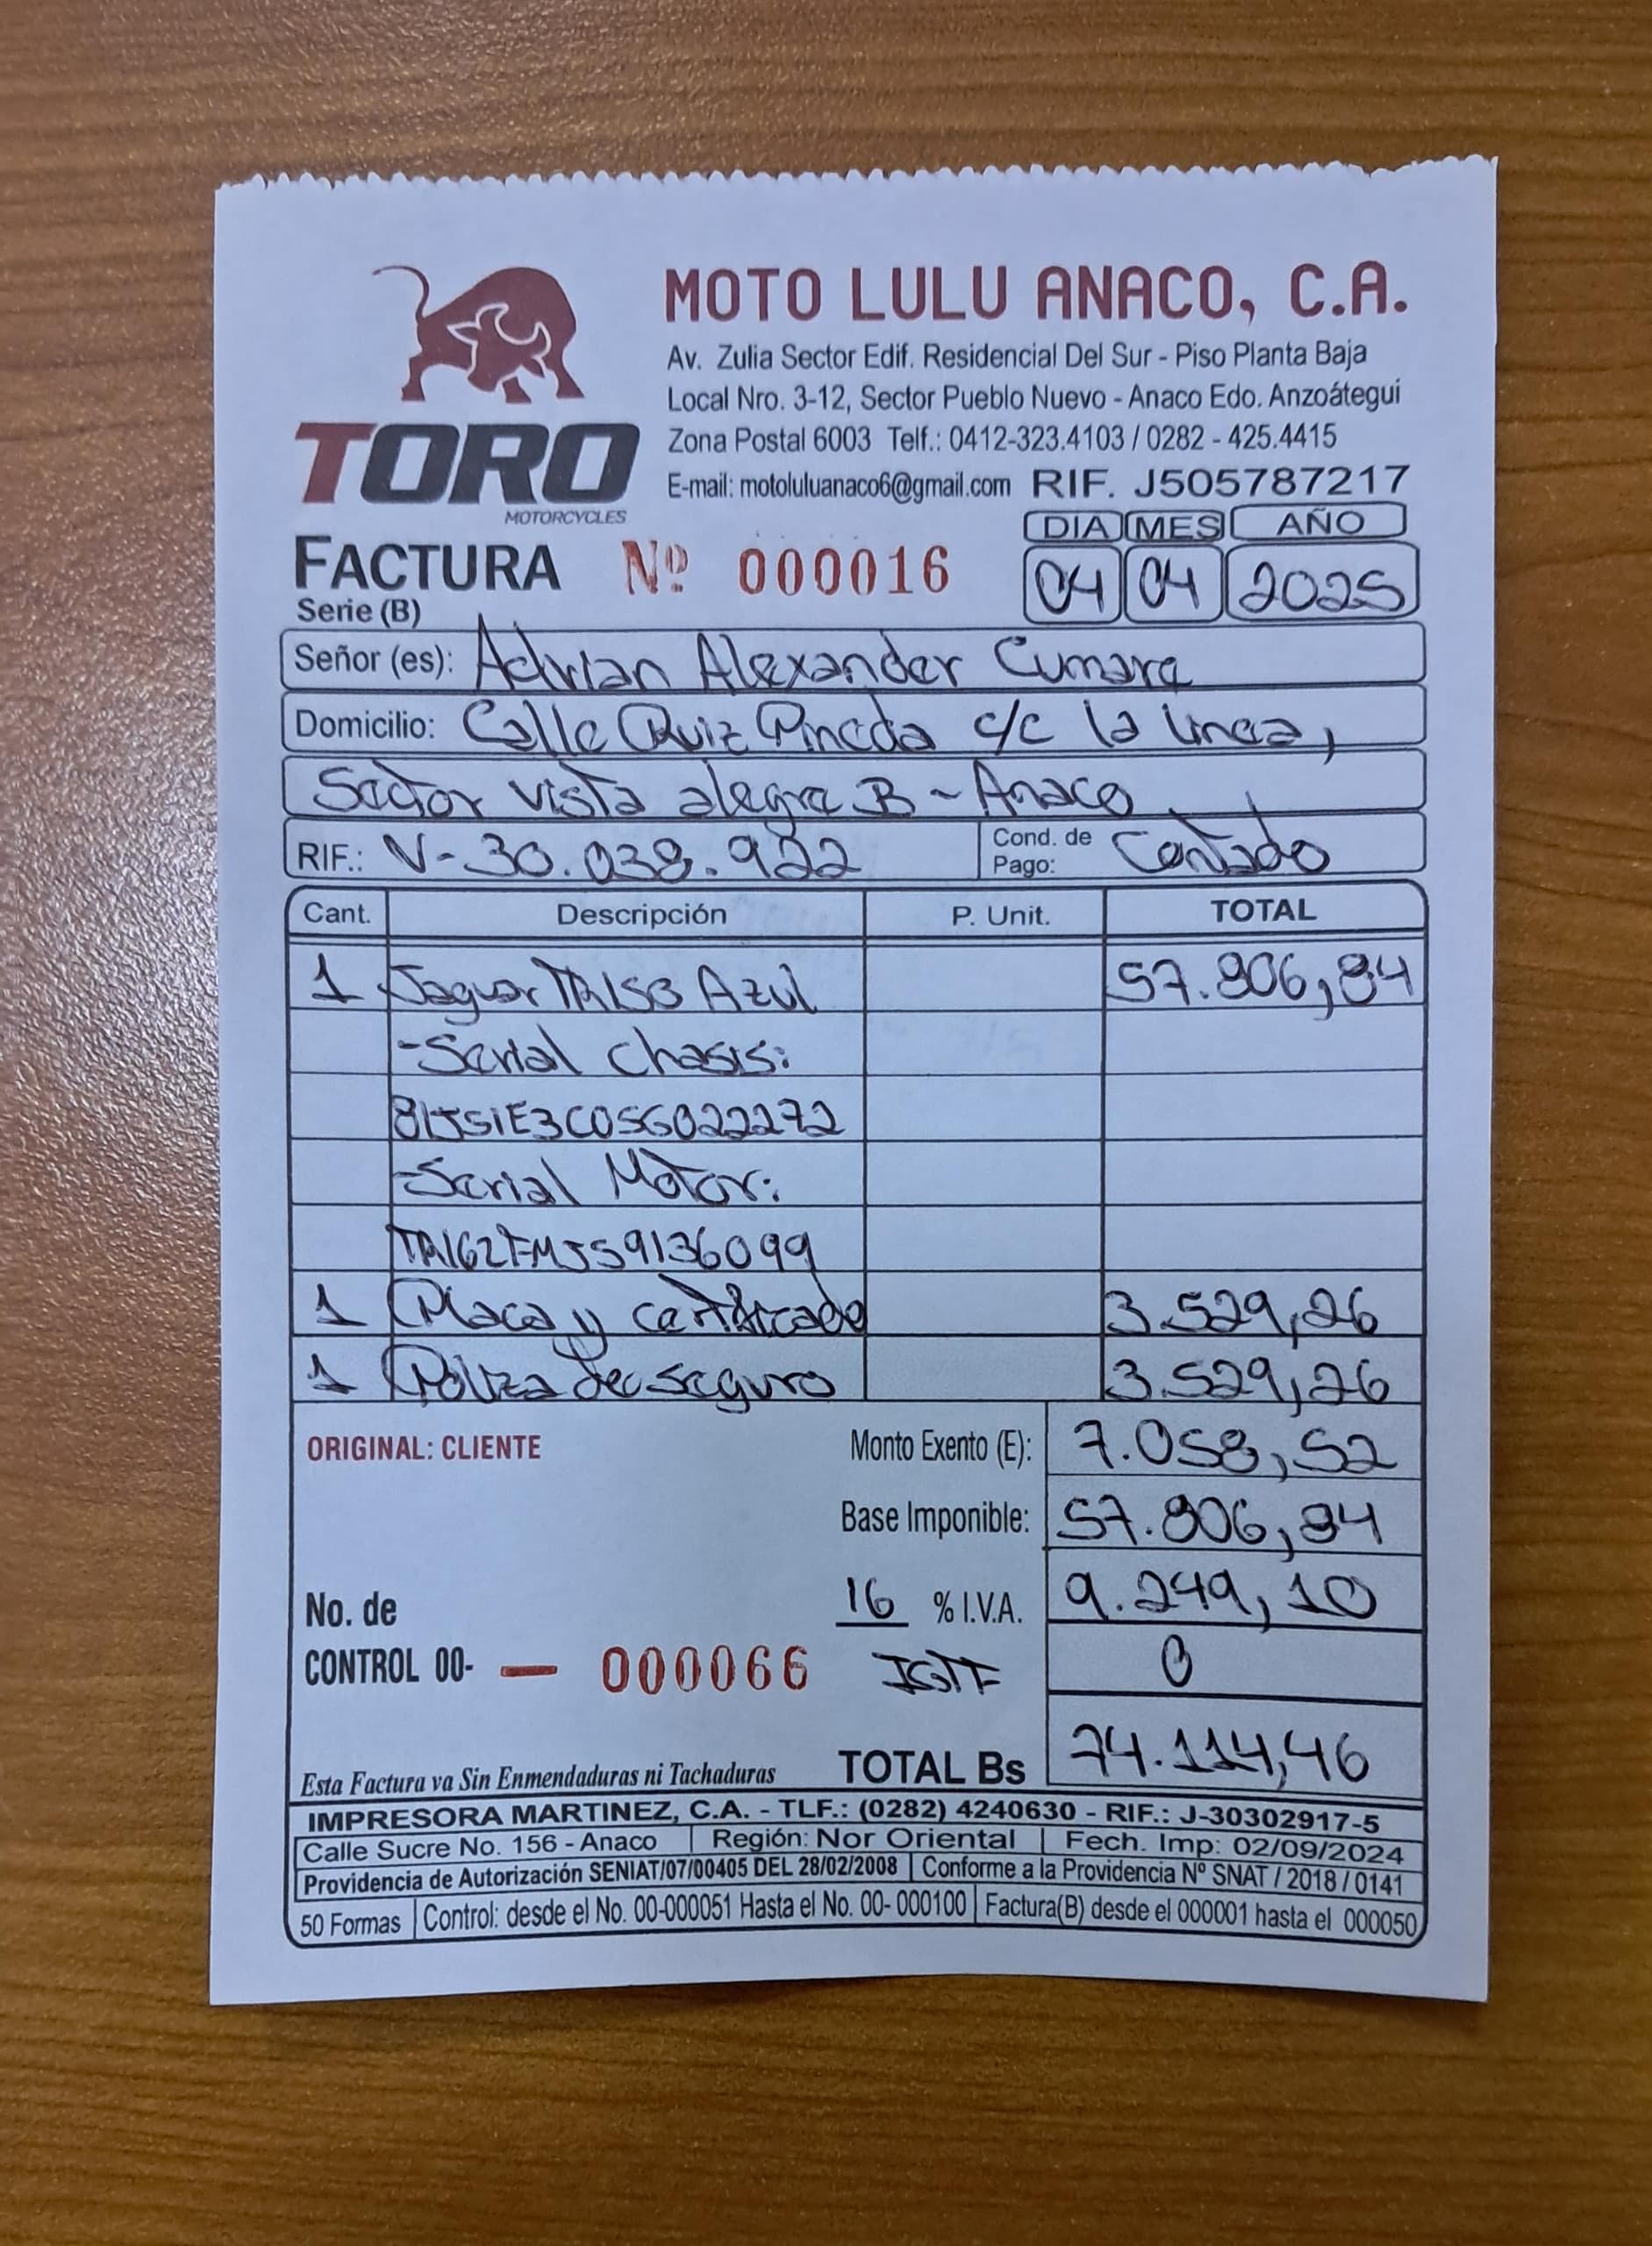 MOTO LULU ANACO, C.A.
Av. Zulia Sector Edif. Residencial Del Sur - Piso Planta Baja
Local Nro. 3-12, Sector Pueblo Nuevo - Anaco Edo. Anzoátegui
Zona Postal 6003 Telf.: 0412-323.4103 / 0282 - 425.4415
E-mail: motoluluanaco6@gmail.com RIF. J505787217
TORO
MOTORCYCLES
DIA MES AÑO
FACTURA Nº 000016 04 04 2025
Serie (B)
Señor (es): Adrian Alexander Cumare
Domicilio: Calle Ruiz Pineda c/c la linea,
Sector vista alegre B - Anaco
RIF.: V-30.038.922 Cond. de Pago: Contado
Cant. Descripción P. Unit. TOTAL
1 Jaguar TR150 Azul 57.806,84
-Serial Chasis:
-Serial Motor:
TR162FMJS9136099
1 Placa y certificado 3.529,26
1 Poliza de seguro 3.529,26
ORIGINAL: CLIENTE Monto Exento (E): 7.058,52
Base Imponible: 57.806,84
16 % I.V.A. 9.249,10
No. de
CONTROL 00- — 000066 IGTF 0
Esta Factura va Sin Enmendaduras ni Tachaduras TOTAL Bs 74.114,46
IMPRESORA MARTINEZ, C.A. - TLF.: (0282) 4240630 - RIF.: J-30302917-5
Calle Sucre No. 156 - Anaco Región: Nor Oriental Fech. Imp: 02/09/2024
Providencia de Autorización SENIAT/07/00405 DEL 28/02/2008 Conforme a la Providencia Nº SNAT / 2018 / 0141
50 Formas Control: desde el No. 00-000051 Hasta el No. 00- 000100 Factura(B) desde el 000001 hasta el 000050